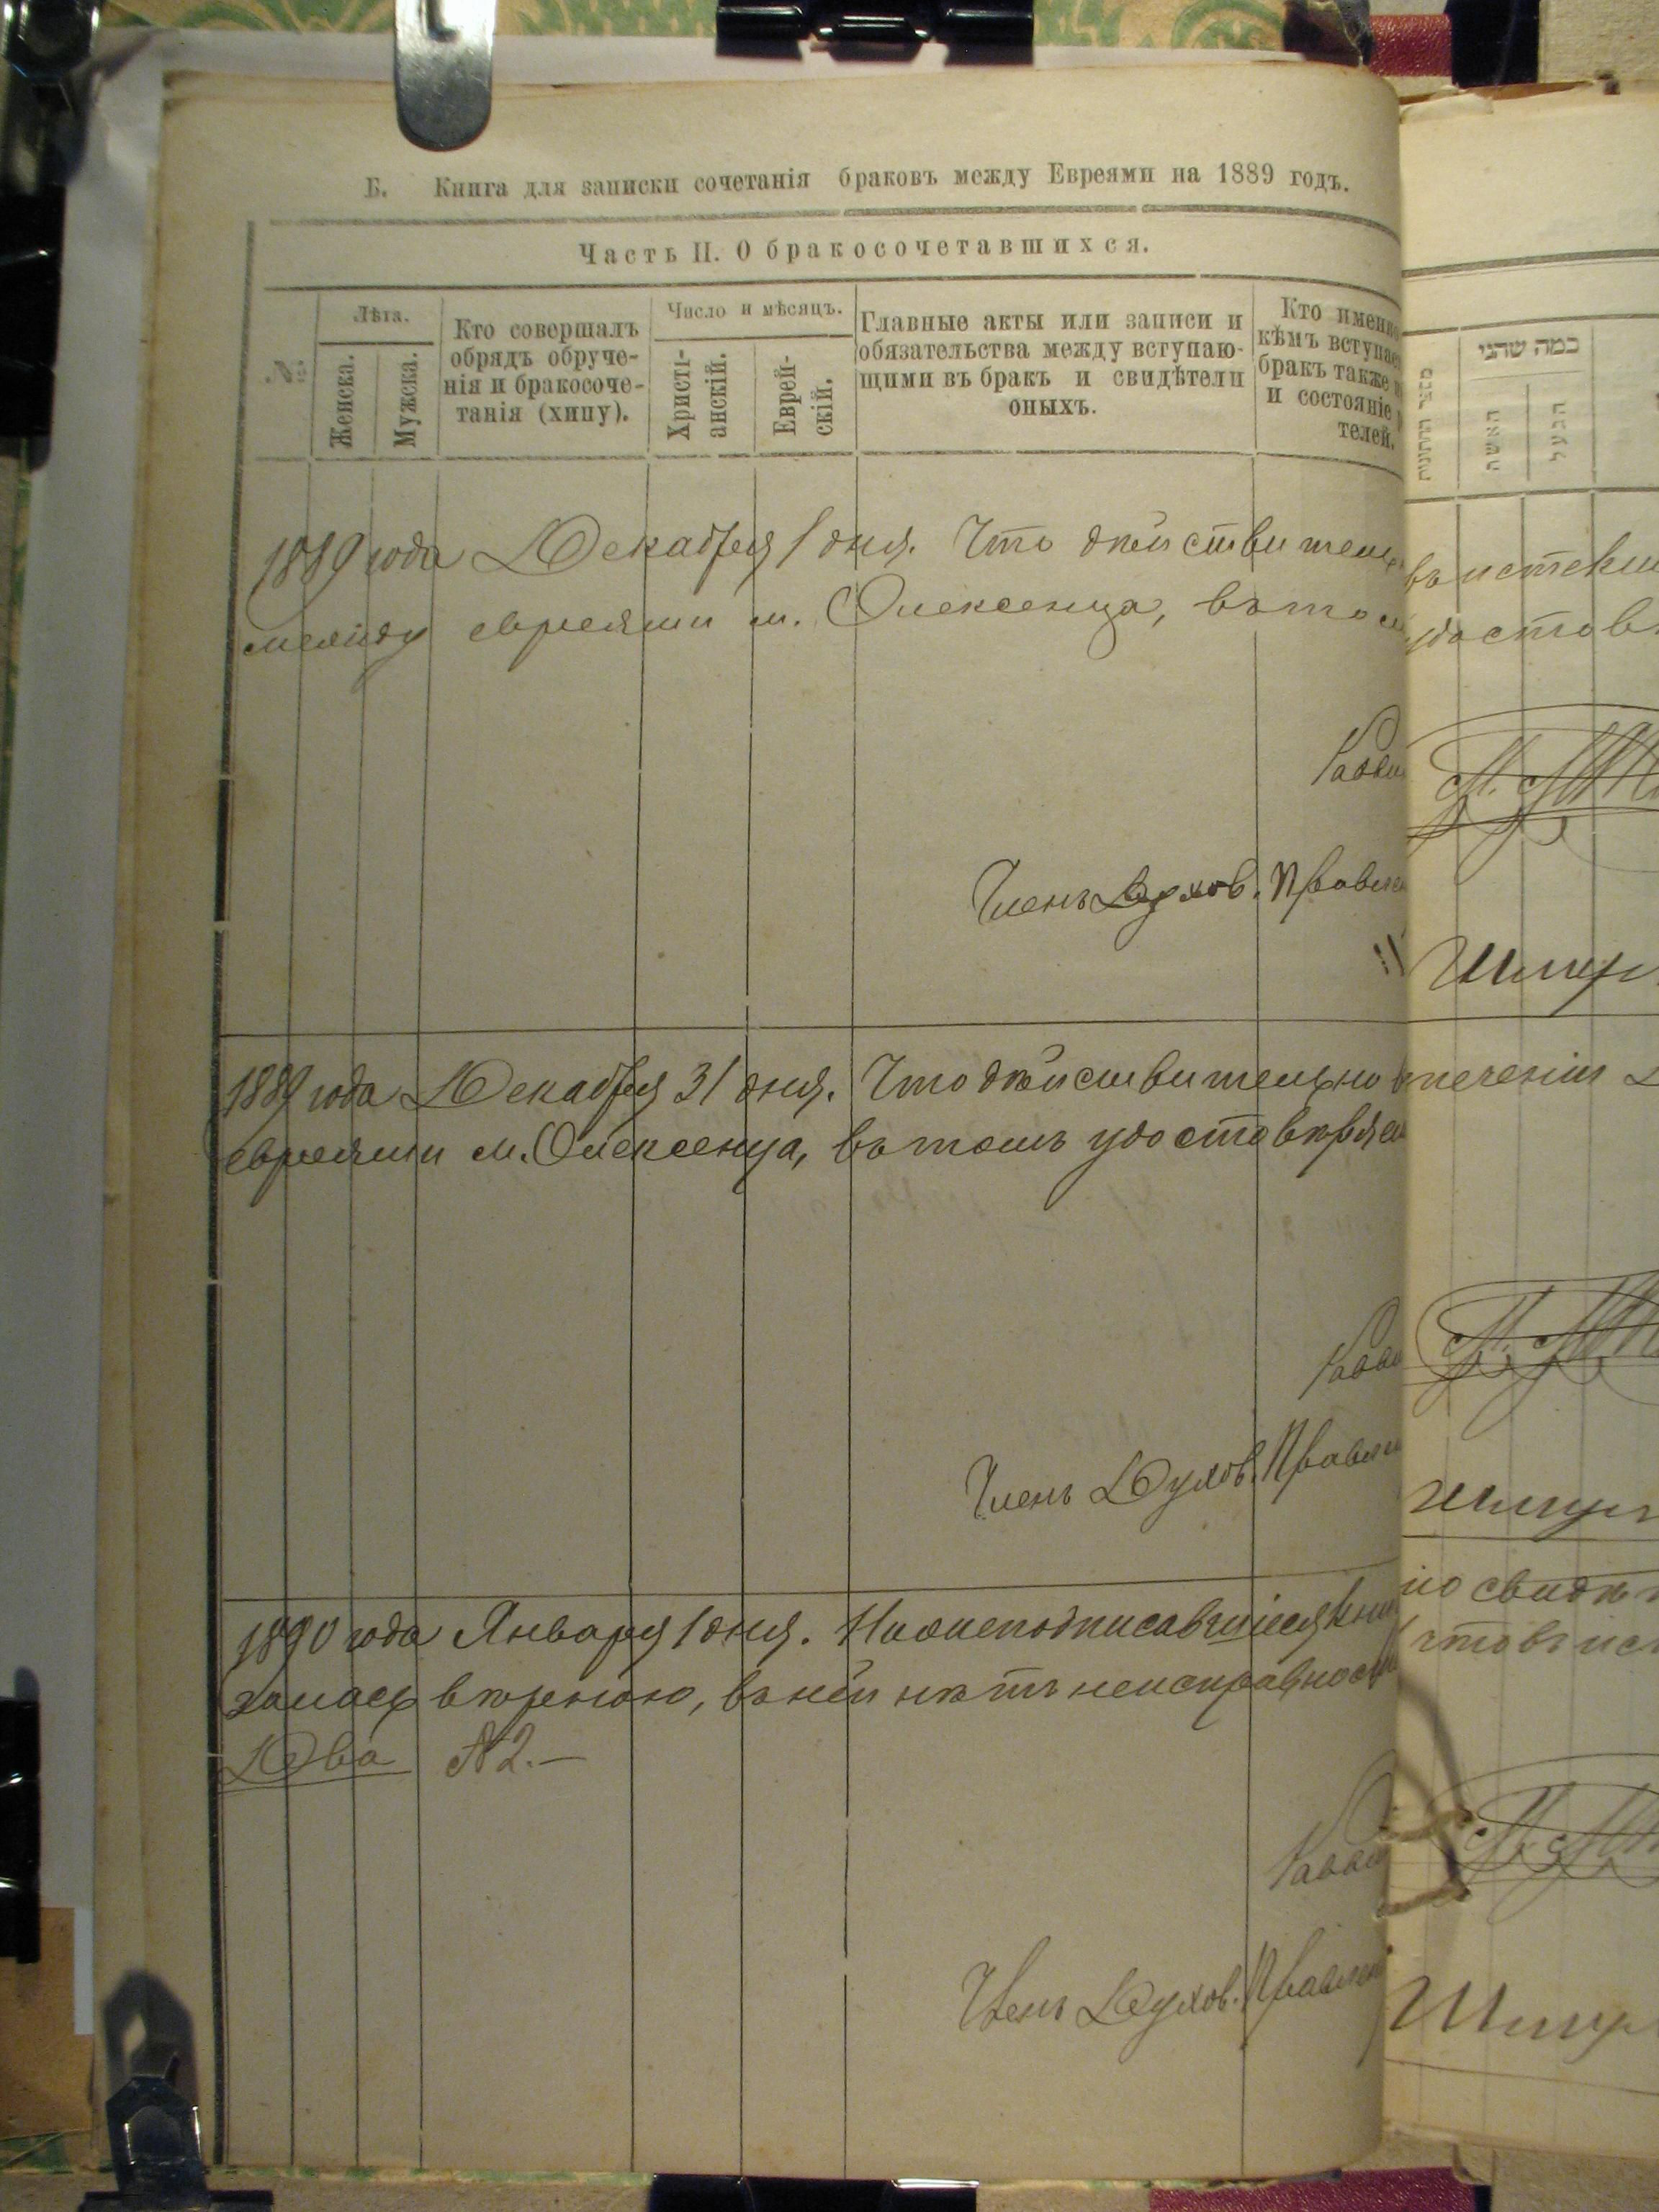 Б. Книга для записки сочетанія браковъ между Евреями на 1889 годъ.
Часть II. О бракосочетавшихся.
№
Лѣта.
Женска.
Мужска.
Кто совершалъ
обрядъ обруче-
нія и бракосоче-
танія (хипу).
Число и мѣсяцъ.
Христі-
анскій.
Еврей-
скій.
Главные акты или записи и
обязательства между вступаю-
щими въ бракъ и свидѣтели
оныхъ.
Кто именно
кѣмъ вступае
бракъ также
и состояніе
телей.
כמה שהני
האשה
הבעל
1889 года Декабря 1 дня. Что дѣйствительн въ истекш
между евреями м. Олексенца, въ том удостов
Равви
Членъ Духов. Правле
Шмул
1889 года Декабря 31 дня. Что дѣйствительно в теченіи
евреями м. Олексенца, въ томъ удостовѣряе
Равви
Членъ Духов. Правле
Шмул
1890 года Января 1 дня. Нижеподписавшіеся кни по свидѣт
залась вѣрною, въ ней нѣтъ неисправност что въ ис
Два № 2.—
Равви
Членъ Духов. Правлен
Шмул